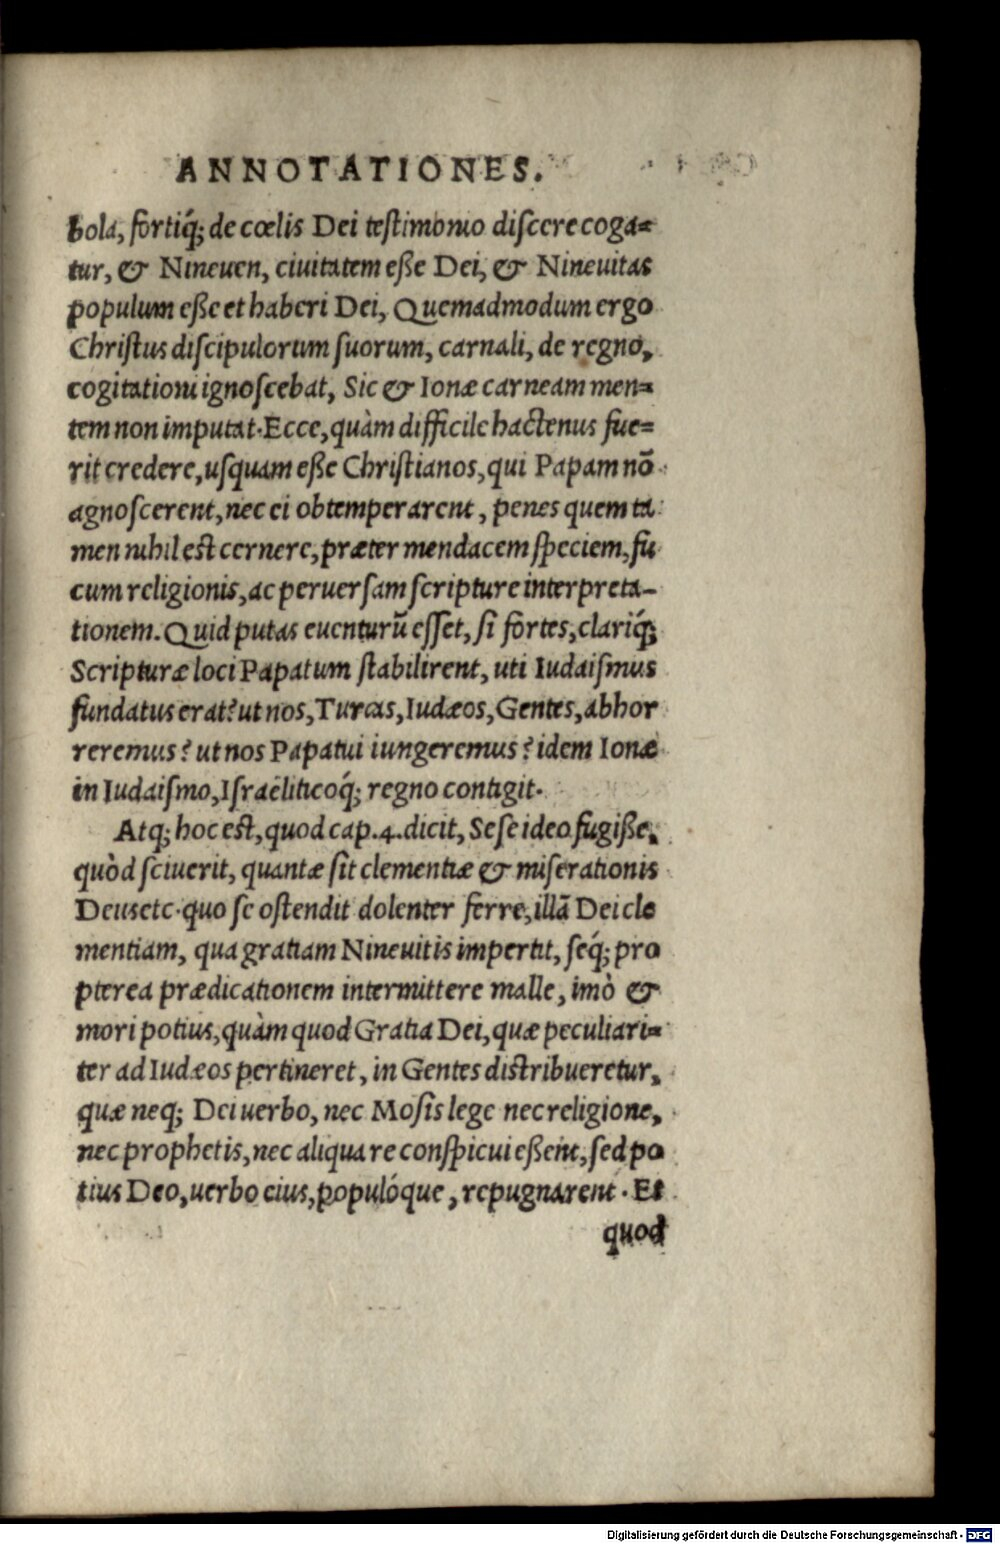 ANNOTATIONES.
bola, fortiq́; de cœlis Dei teſtimonio diſcere coga=
tur, & Nineuen, ciuitatem eße Dei, & Nineuitas
populum eße et haberi Dei, Quemadmodum ergo
Chriſtus diſcipulorum ſuorum, carnali, de regno,
cogitationi ignoſcebat, Sic & Ionæ carneam men=
tem non imputat. Ecce, quàm difficile hactenus fue=
rit credere, uſquam eße Chriſtianos, qui Papam nō
agnoſcerent, nec ei obtemperarent, penes quem ta
men nihil est cernere, præter mendacem ſpeciem, fu
cum religionis, ac peruerſam ſcripture interpreta-
tionem. Quid putas euenturū eſſet, ſi fortes, clariq́;
Scripturæ loci Papatum ſtabilirent, uti Iudaiſmus
fundatus erat? ut nos, Turcas, Iudæos, Gentes, abhor
reremus? ut nos Papatui iungeremus? idem Ionæ
in Iudaiſmo, Iſraëliticoq́; regno contigit.
Atq; hoc est, quod cap. 4. dicit, Seſe ideo fugiße,
quòd ſciuerit, quantæ ſit clementiæ & miſerationis
Deus etc. quo ſe oſtendit dolenter ferre, illā Dei cle
mentiam, qua gratiam Nineuitis impertit, ſeq́; pro
pterea prædicationem intermittere malle, imò &
mori potius, quàm quod Gratia Dei, quæ peculiari=
ter ad Iudæos pertineret, in Gentes diſtribueretur,
quæ neq; Dei uerbo, nec Moſis lege nec religione,
nec prophetis, nec aliqua re conſpicui eßent, ſed po
tius Deo, uerbo eius, populóque, repugnarent. Et
quod
Digitalisierung gefördert durch die Deutsche Forschungsgemeinschaft - DFG